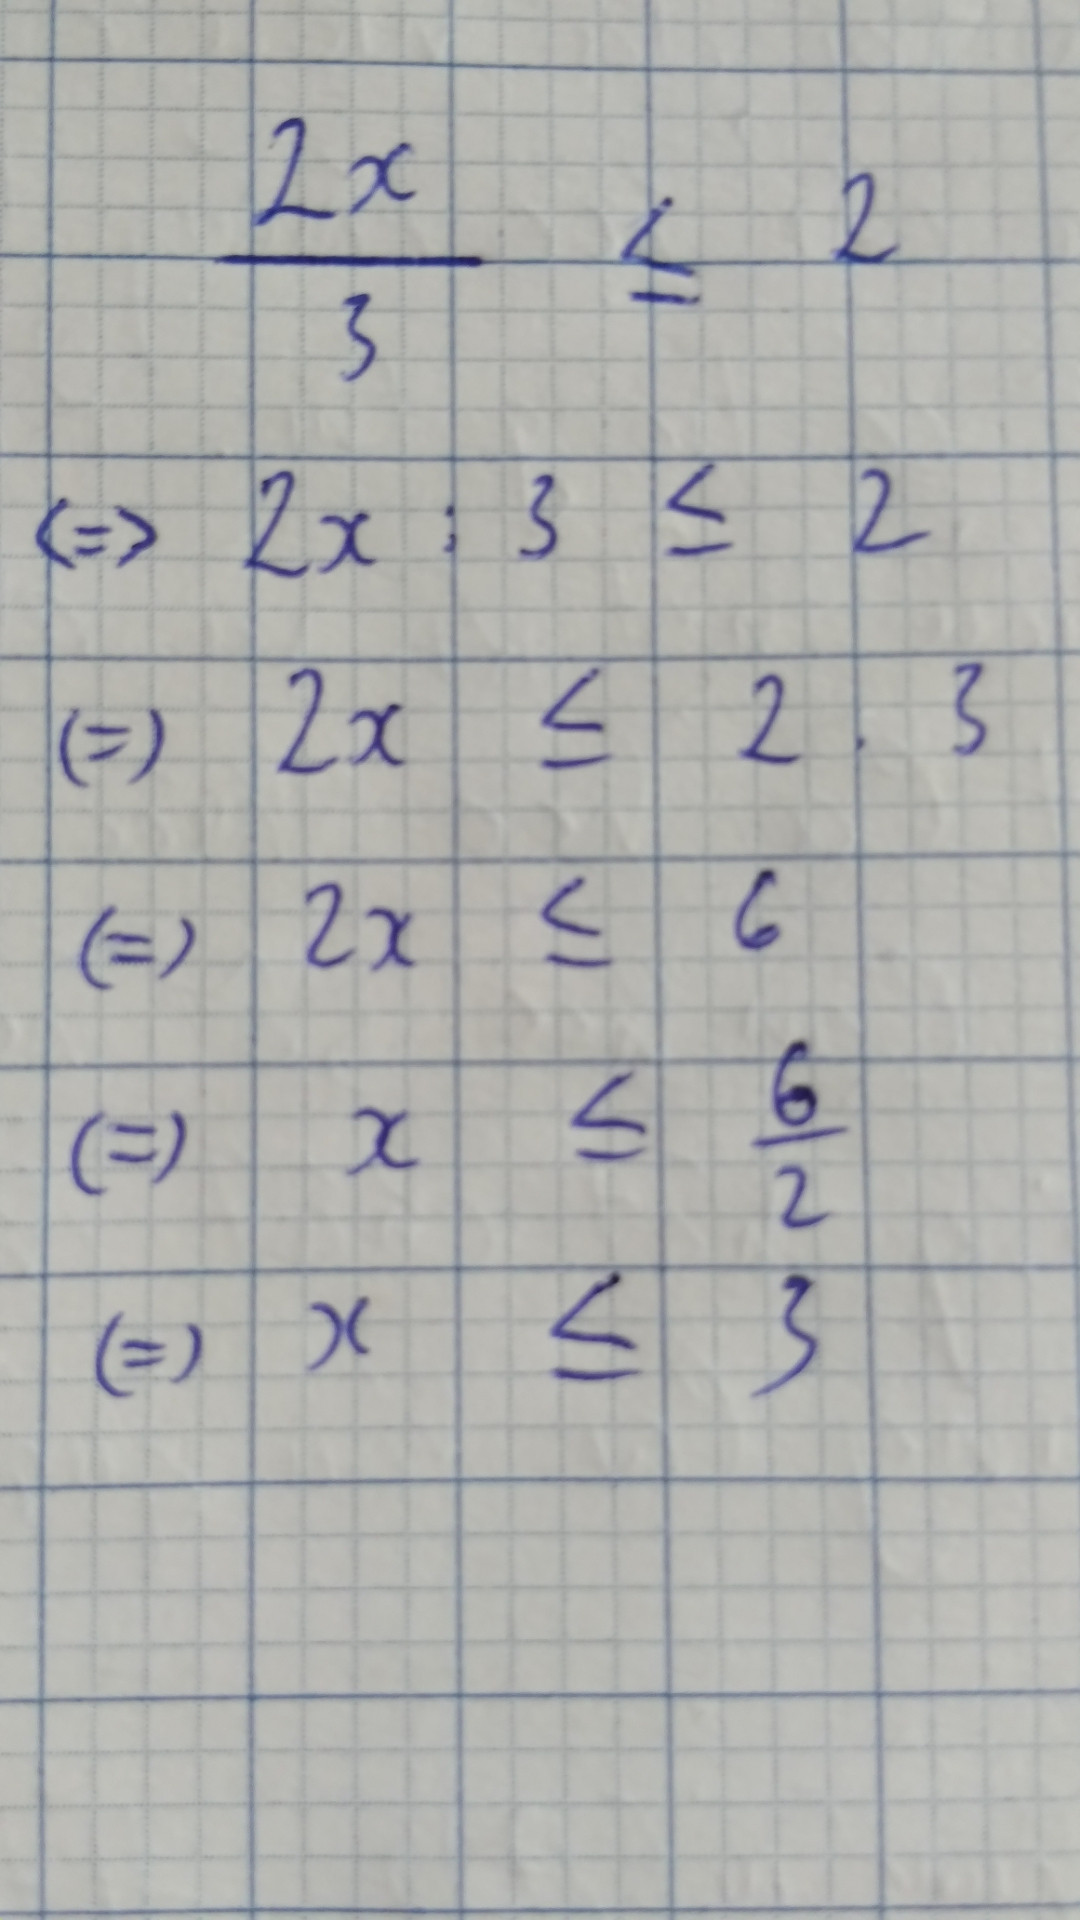 2x/3 ≤ 2
<=> 2x : 3 ≤ 2
(=) 2x ≤ 2 . 3
(=) 2x ≤ 6
(=) x ≤ 6/2
(=) x ≤ 3